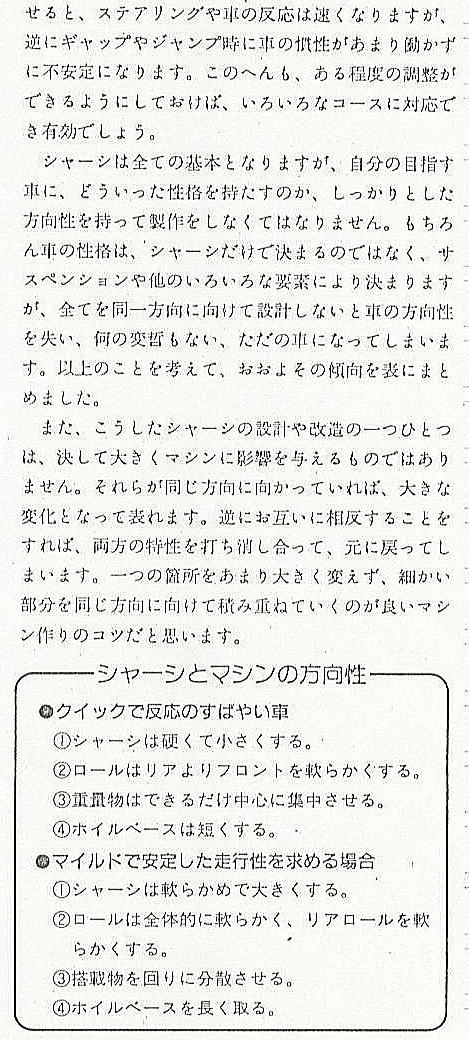 せると、ステアリングや車の反応は速くなりますが、
逆にギャップやジャンプ時に車の慣性があまり働かず
に不安定になります。このへんも、ある程度の調整が
できるようにしておけば、いろいろなコースに対応で
き有効でしょう。
シャーシは全ての基本となりますが、自分の目指す
車に、どういった性格を持たすのか、しっかりとした
方向性を持って製作をしなくてはなりません。もちろ
ん車の性格は、シャーシだけで決まるのではなく、サ
スペンションや他のいろいろな要素により決まります
が、全てを同一方向に向けて設計しないと車の方向性
を失い、何の変哲もない、ただの車になってしまいま
す。以上のことを考えて、おおよその傾向を表にまと
めました。
また、こうしたシャーシの設計や改造の一つひとつ
は、決して大きくマシンに影響を与えるものではあり
ません。それらが同じ方向に向かっていれば、大きな
変化となって表れます。逆にお互いに相反することを
すれば、両方の特性を打ち消し合って、元に戻ってし
まいます。一つの箇所をあまり大きく変えず、細かい
部分を同じ方向に向けて積み重ねていくのが良いマシ
ン作りのコツだと思います。
シャーシとマシンの方向性
●クイックで反応のすばやい車
①シャーシは硬くて小さくする。
②ロールはリアよりフロントを軟らかくする。
③重量物はできるだけ中心に集中させる。
④ホイルベースは短くする。
●マイルドで安定した走行性を求める場合
①シャーシは軟らかめで大きくする。
②ロールは全体的に軟らかく、リアロールを軟
らかくする。
③搭載物を回りに分散させる。
④ホイルベースを長く取る。